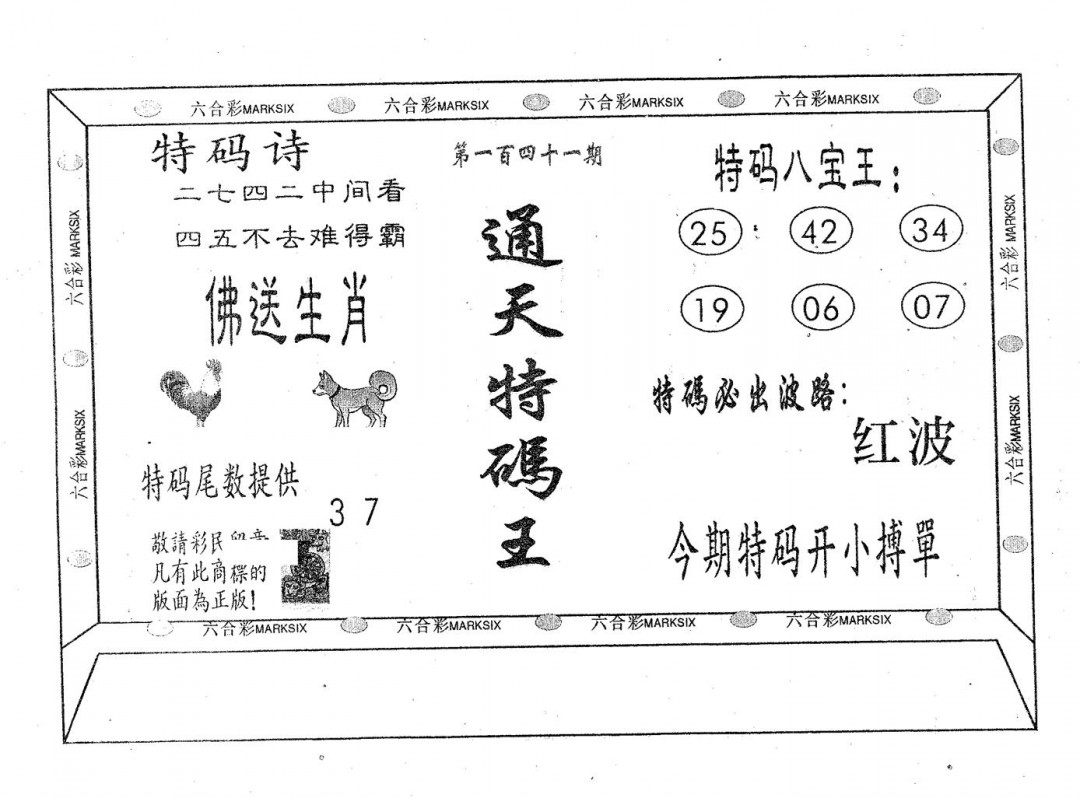 六合彩MARKSIX 六合彩MARKSIX 六合彩MARKSIX 六合彩MARKSIX
六合彩 MARKSIX
六合彩MARKSIX
特码诗
二七四二中间看
四五不去难得霸
佛送生肖
特码尾数提供
3 7
敬請彩民
凡有此商標的
版面為正版！
第一百四十一期
通天特碼王
特码八宝王：
25 42 34
19 06 07
特碼必出波路：
红波
今期特码开小搏單
六合彩 MARKSIX
六合彩MARKSIX
六合彩MARKSIX 六合彩MARKSIX 六合彩MARKSIX 六合彩MARKSIX